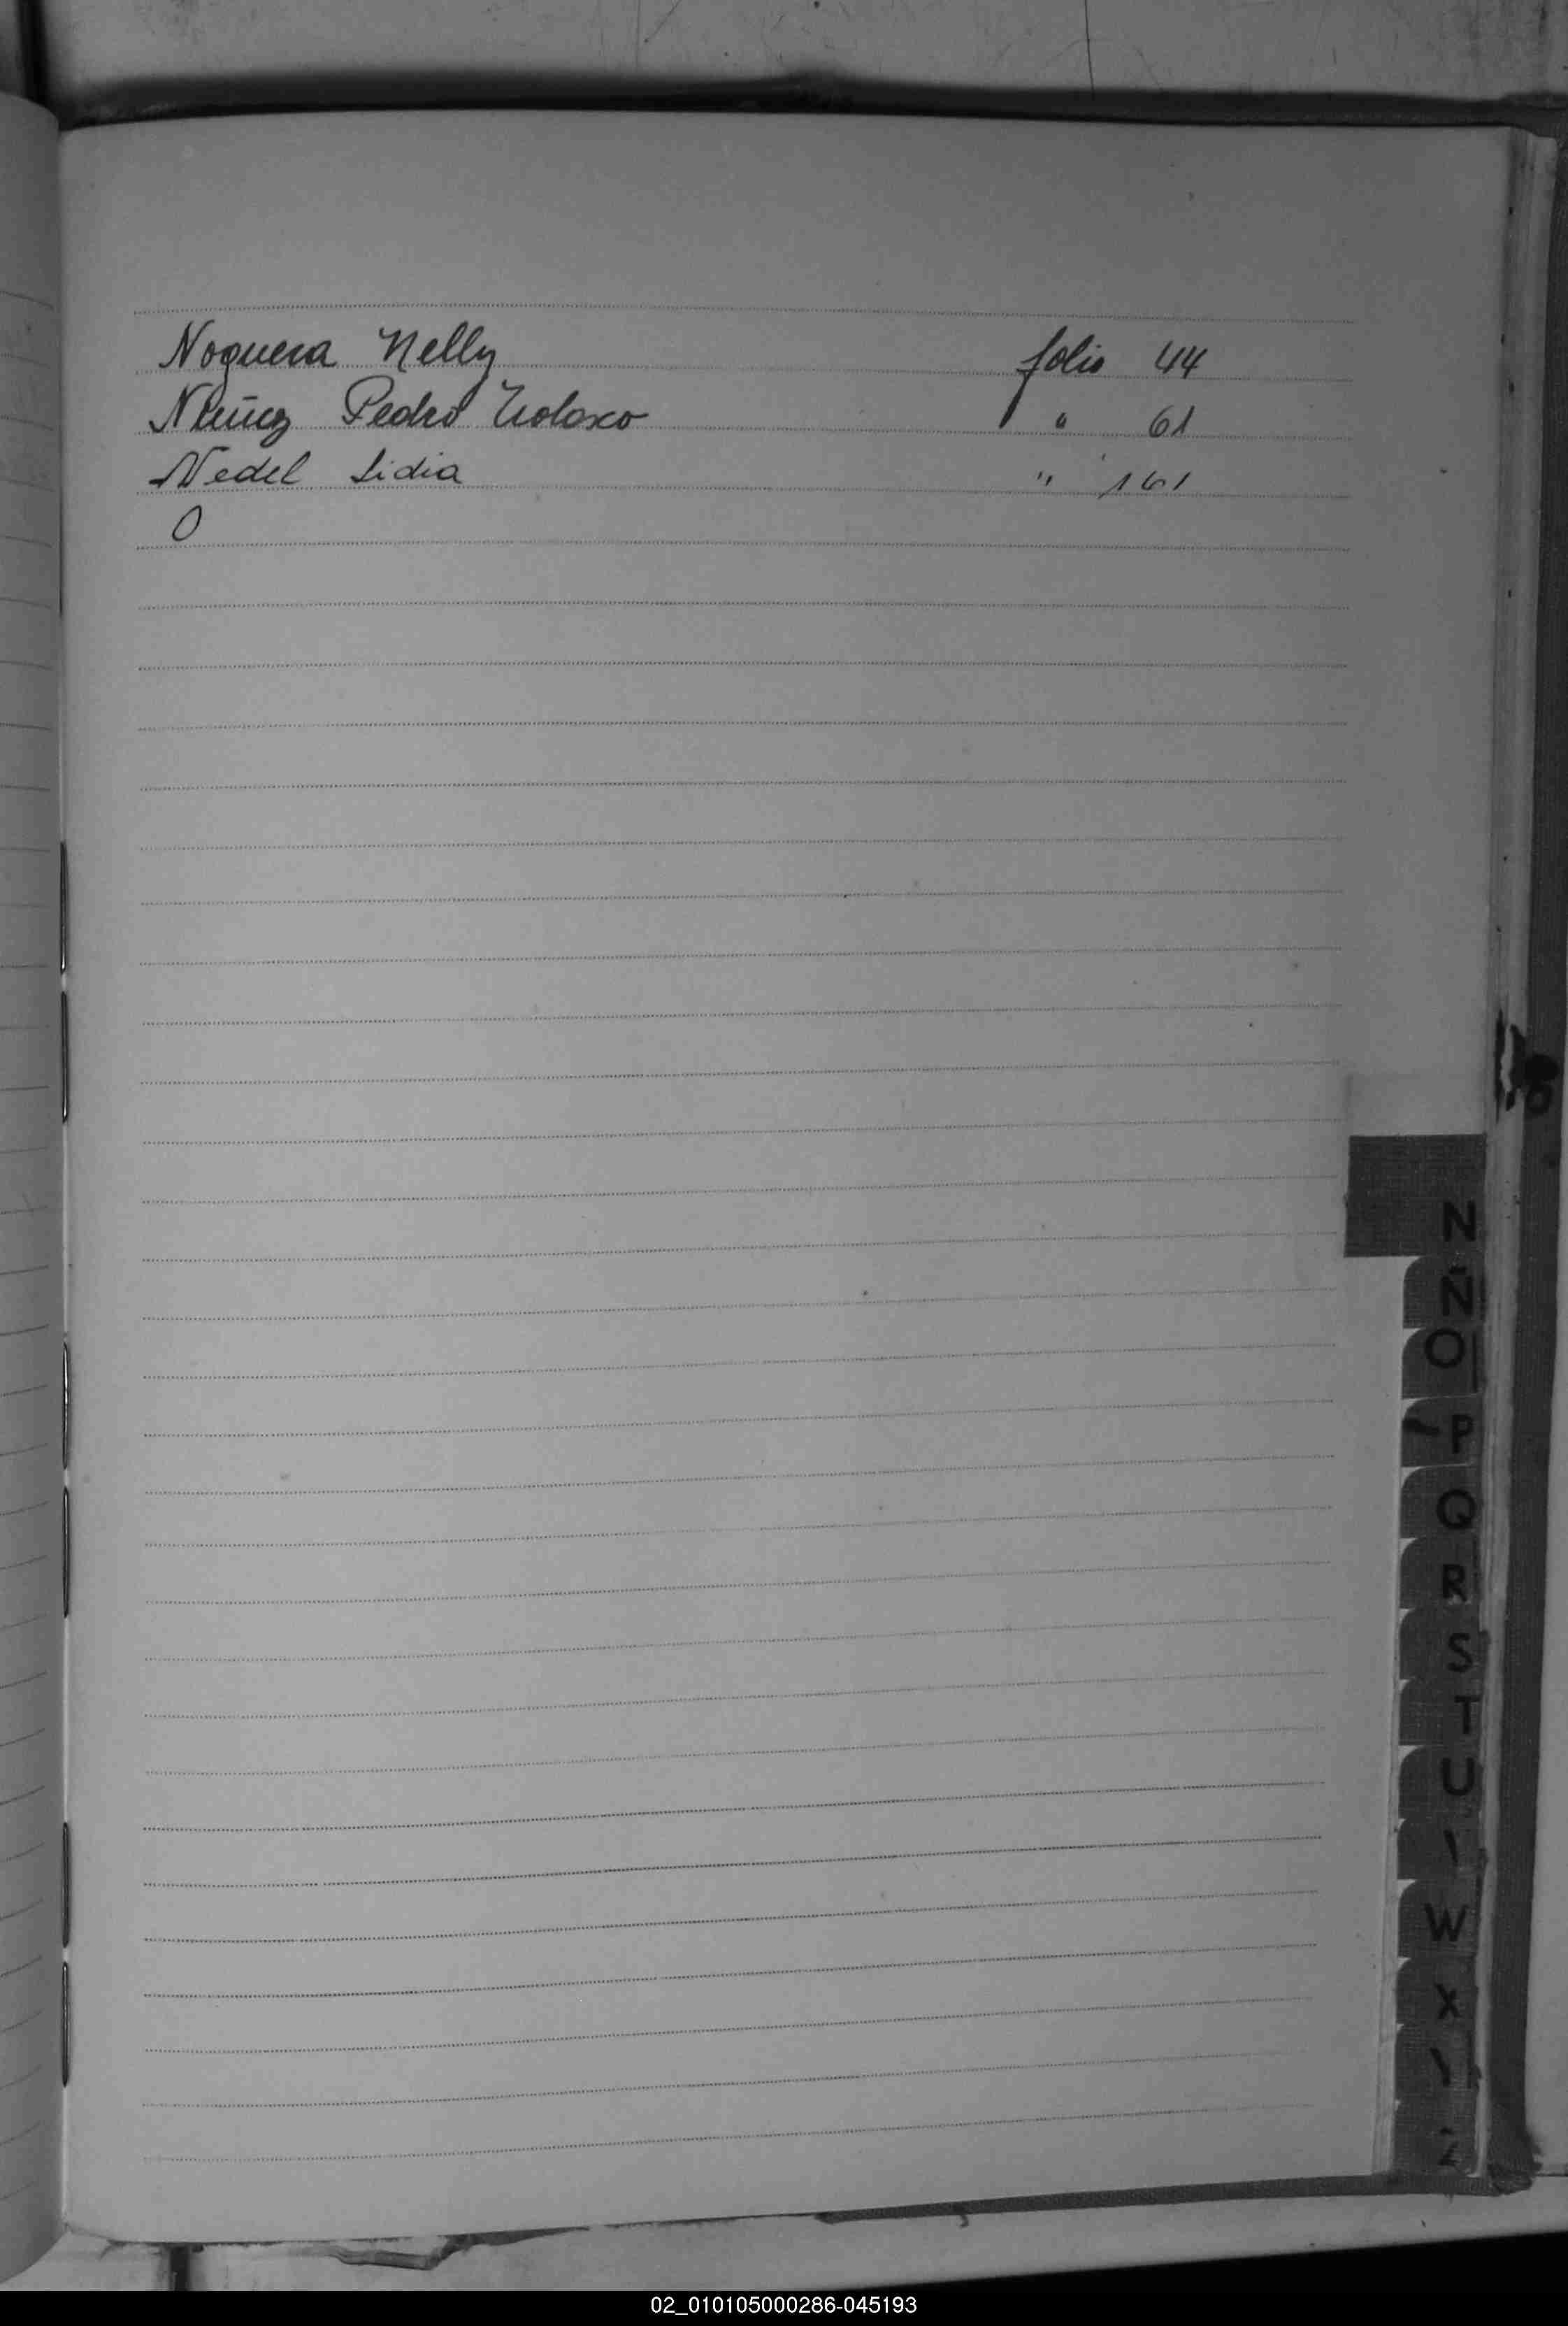 Noguera Nelly folio 44
Núñez Pedro " 61
Nedel Lidia " 161
O
N
Ñ
O
P
Q
R
S
T
U
W
X
Z
02_010105000286-045193